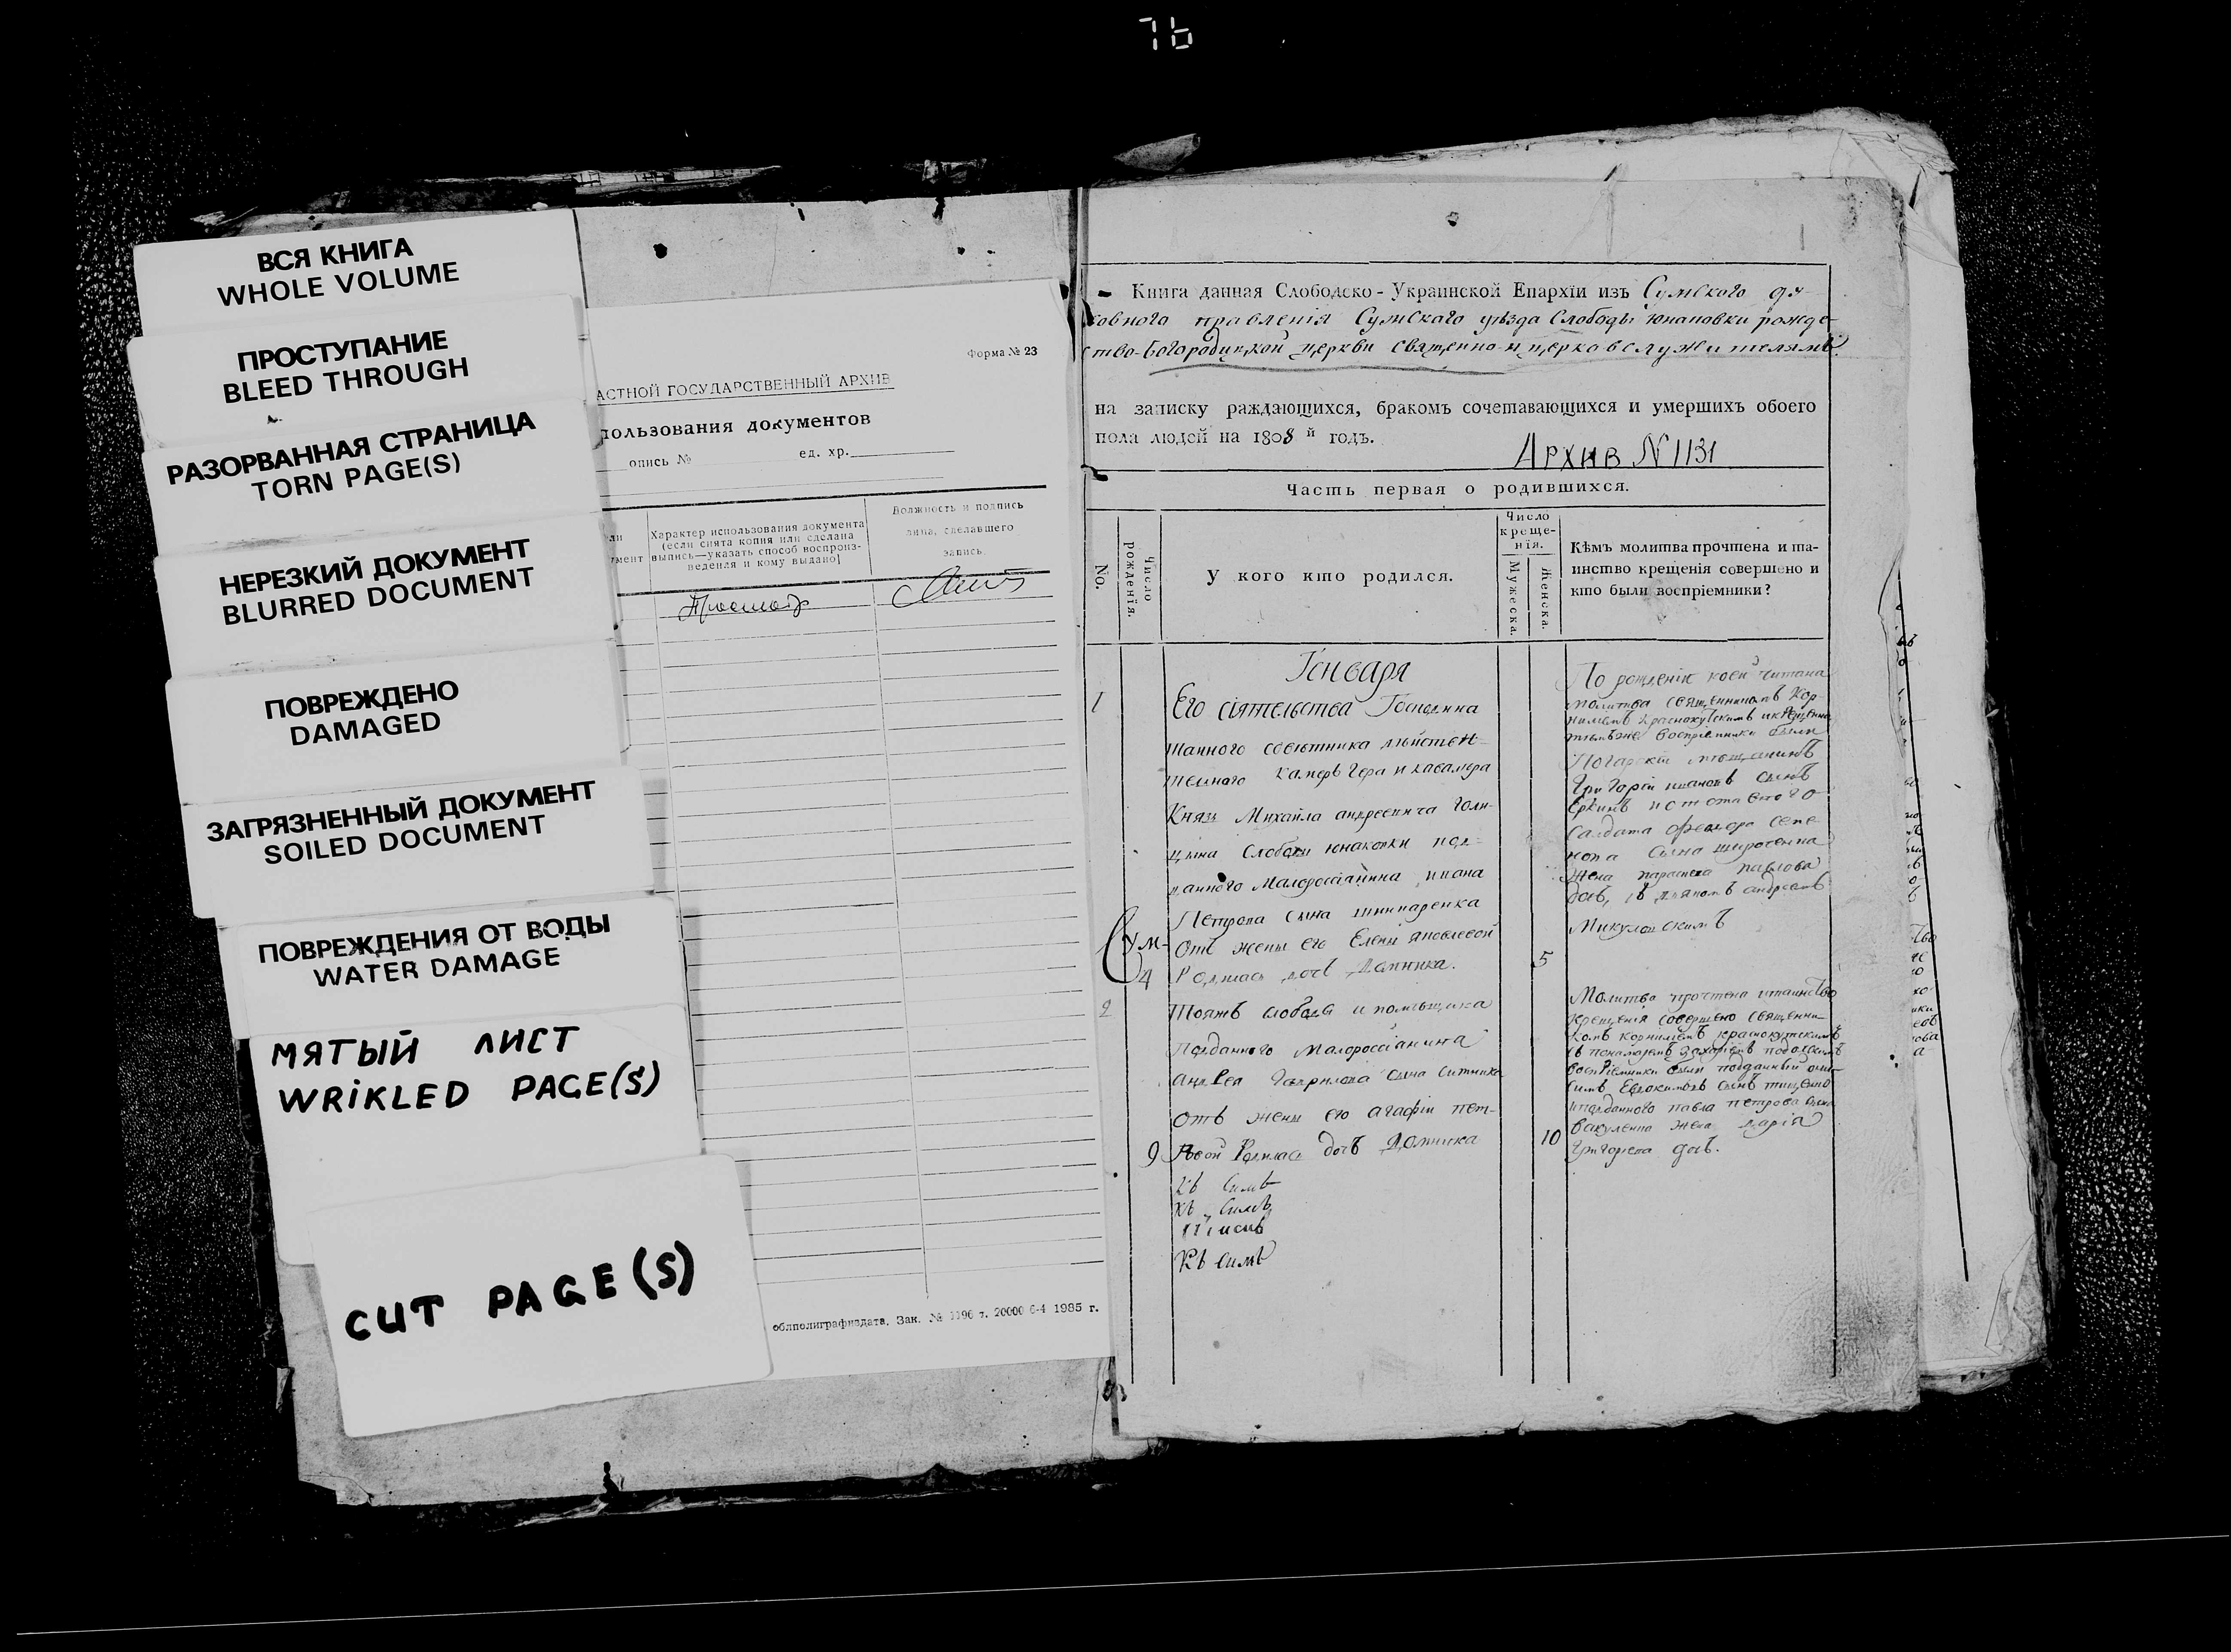 76
ВСЯ КНИГА
WHOLE VOLUME
ПРОСТУПАНИЕ
BLEED THROUGH
РАЗОРВАННАЯ СТРАНИЦА
TORN PAGE(S)
НЕРЕЗКИЙ ДОКУМЕНТ
BLURRED DOCUMENT
ПОВРЕЖДЕНО
DAMAGED
ЗАГРЯЗНЕННЫЙ ДОКУМЕНТ
SOILED DOCUMENT
ПОВРЕЖДЕНИЯ ОТ ВОДЫ
WATER DAMAGE
МЯТЫЙ ЛИСТ
WRiKLED PAGE(S)
CUT PAGE(S)
Форма № 23
АСТНОЙ ГОСУДАРСТВЕННЫЙ АРХИВ
пользования документов
опись № ед. хр.
Характер использования документа
(если снята копия или сделана
выпись—указать способ воспроиз-
ведения и кому выдано)
Должность и подпись
лица, сделавшего
запись
облполиграфиздата. Зак. № 1196 т. 20000 6-4 1985 г.
Книга данная Слободско-Украинской Епархїи изъ Сумского ду-
ховного правленія Сумскаго уѣзда Слободы Юнаковки рожде-
ство-Богородицкой церкви священно-и церковслужителямъ
на записку раждающихся, бракомъ сочетавающихся и умершихъ обоего
пола людей на 1808 й годъ.
Архив N 1131
Часть первая о родившихся.
No.
Число рожденїя.
У кого кто родился.
Число креще-нїя.
Мужеска.
Женска.
Кѣмъ молитва прочтена и та-
инство крещенїя совершено и
кто были воспрїемники?
Генваря
1
Его сіятельства Господина
тайного советника действи-
телного Камеръ Гера и кавалера
Князя Михаила андреевича Голи-
цына Слободы юнаковки под-
данного Малороссіянина ивана
Петрова сына
Ум-
отъ жены его Елены яковлевой
4
Родилась дочь Домника.
5
По рожденіи коей читана
молитва священникомъ Кор-
ниліемъ Краснокутскимъ
воспріемники были
Григорій ивановъ сынъ
Салдата
сына
жена параскева павлова
дочь, съ дьякономъ андреемъ
2
Тояжъ слободы и помѣщика
подданного Малороссіянина
андрея Гаврилова сына Ситника
отъ жены его агафіи пет-
9
ровой Родилась дочь Домника
10
Молитва прочтена и таинство
крещенія совершено священни-
комъ корниліемъ краснокутскимъ
съ пономаремъ захаріемъ
воспріемники были подданный они-
симъ Евдокимовъ сынъ
и подданного павла петрова сына
вакуленка жена марія
Григорьева дочь.
Къ симъ